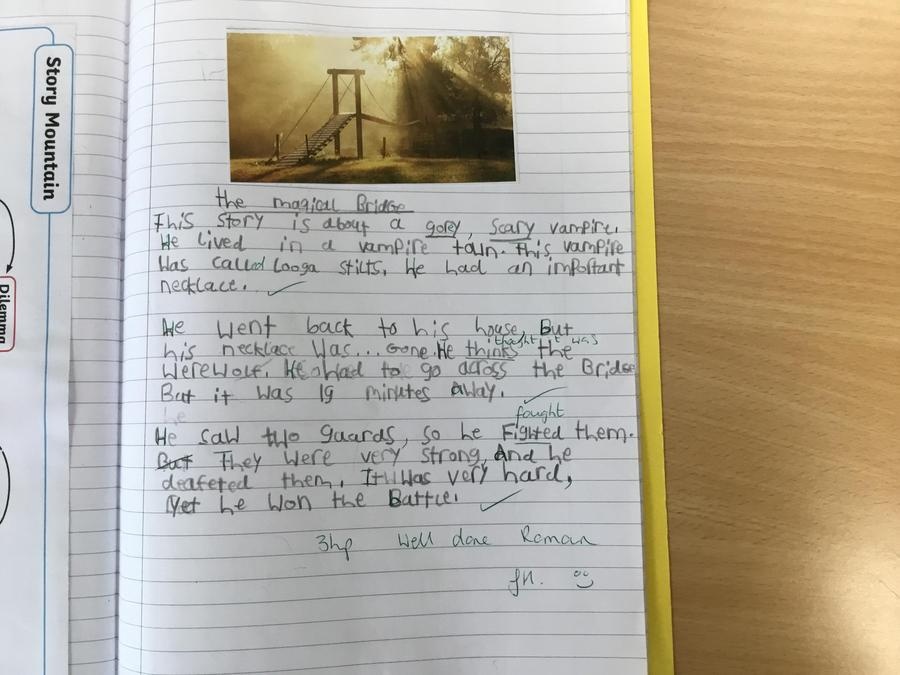 Story Mountain
Dilemma
the magical Bridge
This story is about a gorey, scary vampire.
He lived in a vampire town. This vampire
was called Looga stilts. He had an important
necklace. ✓
He went back to his house, But
thought it was
his necklace was... Gone. He thinks the
werewolf. He had to go across the Bridge
But it was 19 minutes away.
✓
he
fought
He saw two guards, so he Fighted them.
But They were very strong, And he
deafeted them. It was very hard,
Yet he won the Battle. ✓
3hp Well done Roman